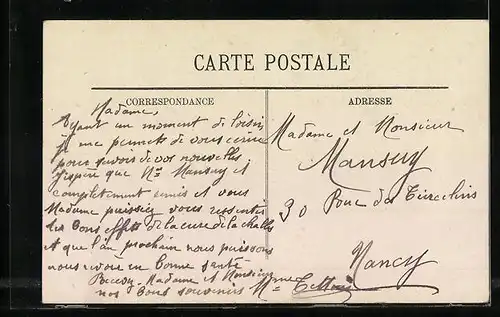 CARTE POSTALE
CORRESPONDANCE
ADRESSE
Madame,
Ayant un moment de loisir,
je me permets de vous écrire
pour savoir de vos nouvelles
J'espère que Mr Mansuy et
complètement remis et vous
Madame puissiez vous ressentir
des bons effets de la cure de la
et que l'an prochain nous puissons
nous revoir en bonne santé
Recevez Madame et Monsieur
nos bons souvenirs Mme
Madame et Monsieur
Mansuy
30 Rue des Tiercelins
Nancy